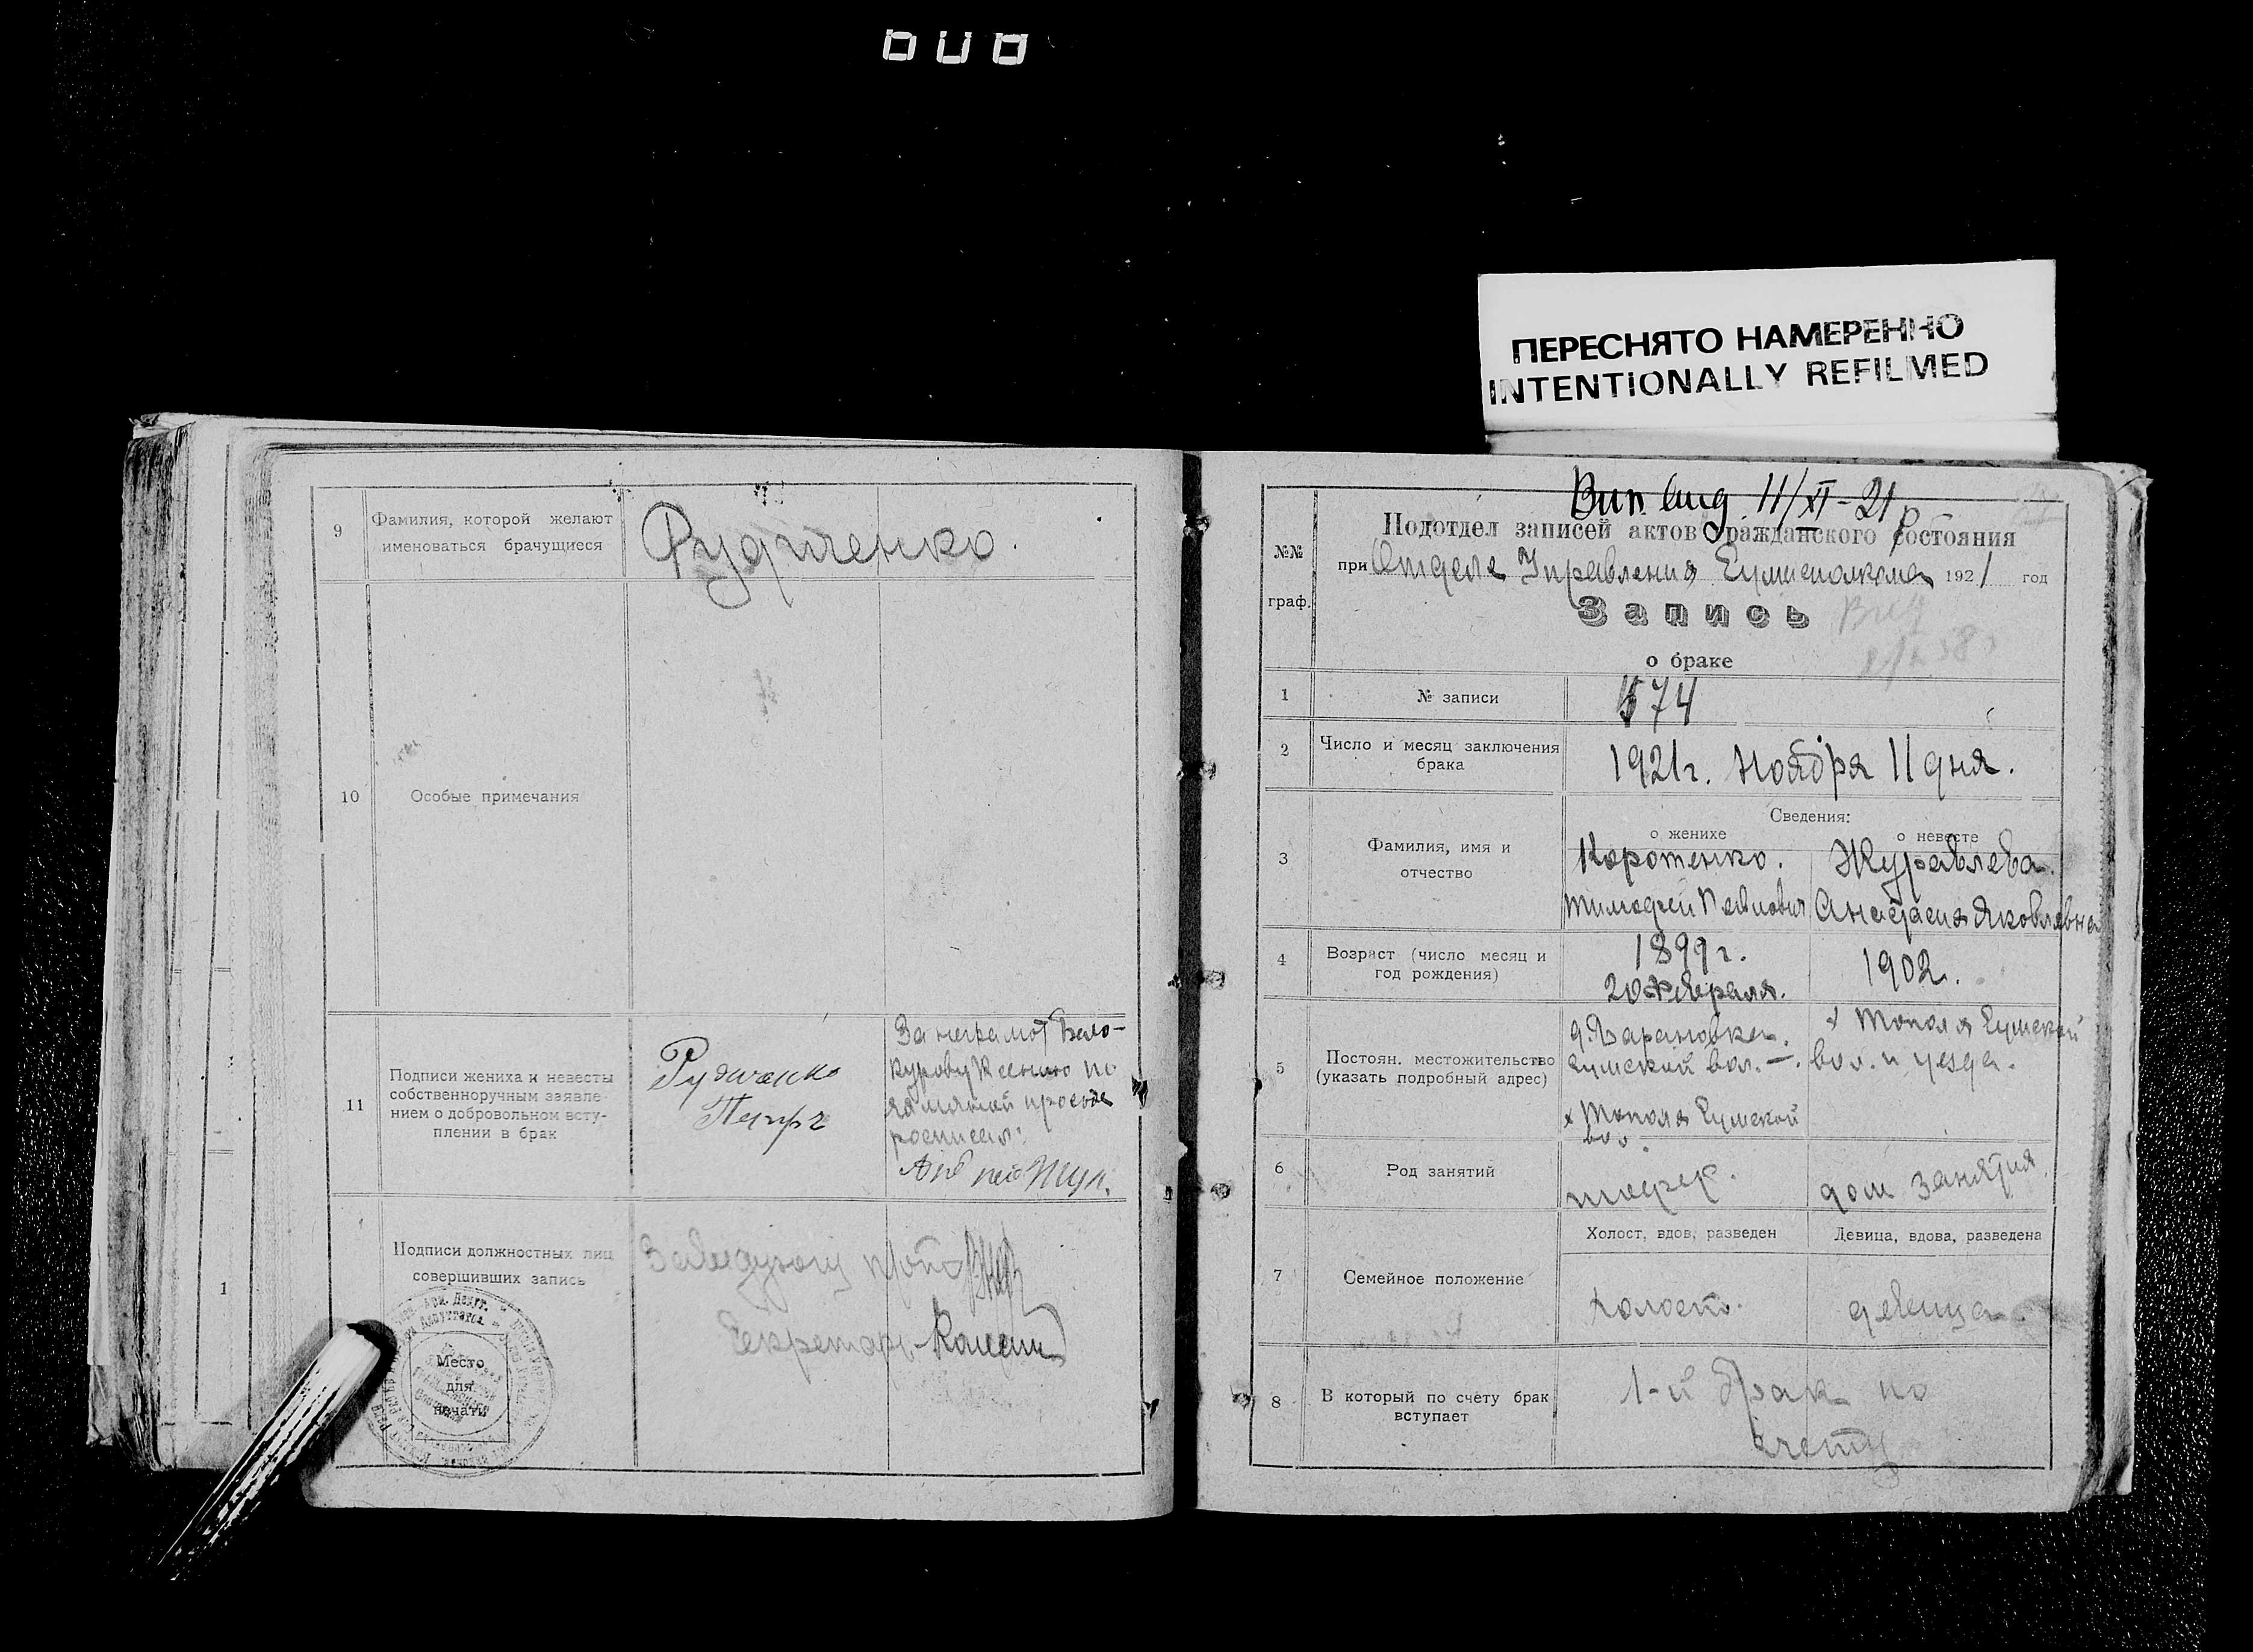 ПЕРЕСНЯТО НАМЕРЕННО
INTENTIONALLY REFILMED
9
Фамилия, которой желают
именоваться брачущиеся
Рудченко.
10
Особые примечания
11
Подписи жениха и невесты
собственноручным заявле-
нием о добровольном всту-
плении в брак
Рудченко
Петр
За неграмот Бело-
курову Ксению по
росписал:
Подписи должностных лиц
совершивших запись
Заведующ
Секретарь
Место
для
печати
1
11/XI-21
№№
граф.
Подотдел записей актов Гражданского Состояния
при Отделе Управления 1921 год
Запись
о браке
1
№ записи
574
2
Число и месяц заключения
брака
1921 г. Ноября 11 дня.
Сведения:
о женихе
о невесте
3
Фамилия, имя и
отчество
Коротенко.
Тимофей
Журавлева
Анастасия Яковлевна
4
Возраст (число месяц и
год рождения)
1899 г.
20 Февраля.
1902.
5
Постоян. местожительство
(указать подробный адрес)
д. Барановка
вол. —.
х Тополя
вол.
х Тополя
вол. и уезда.
6
Род занятий
дом занятия
7
Семейное положение
Холост, вдов, разведен
Девица, вдова, разведена
холост.
девица.
8
В который по счету брак
вступает
1-й брак по
счету